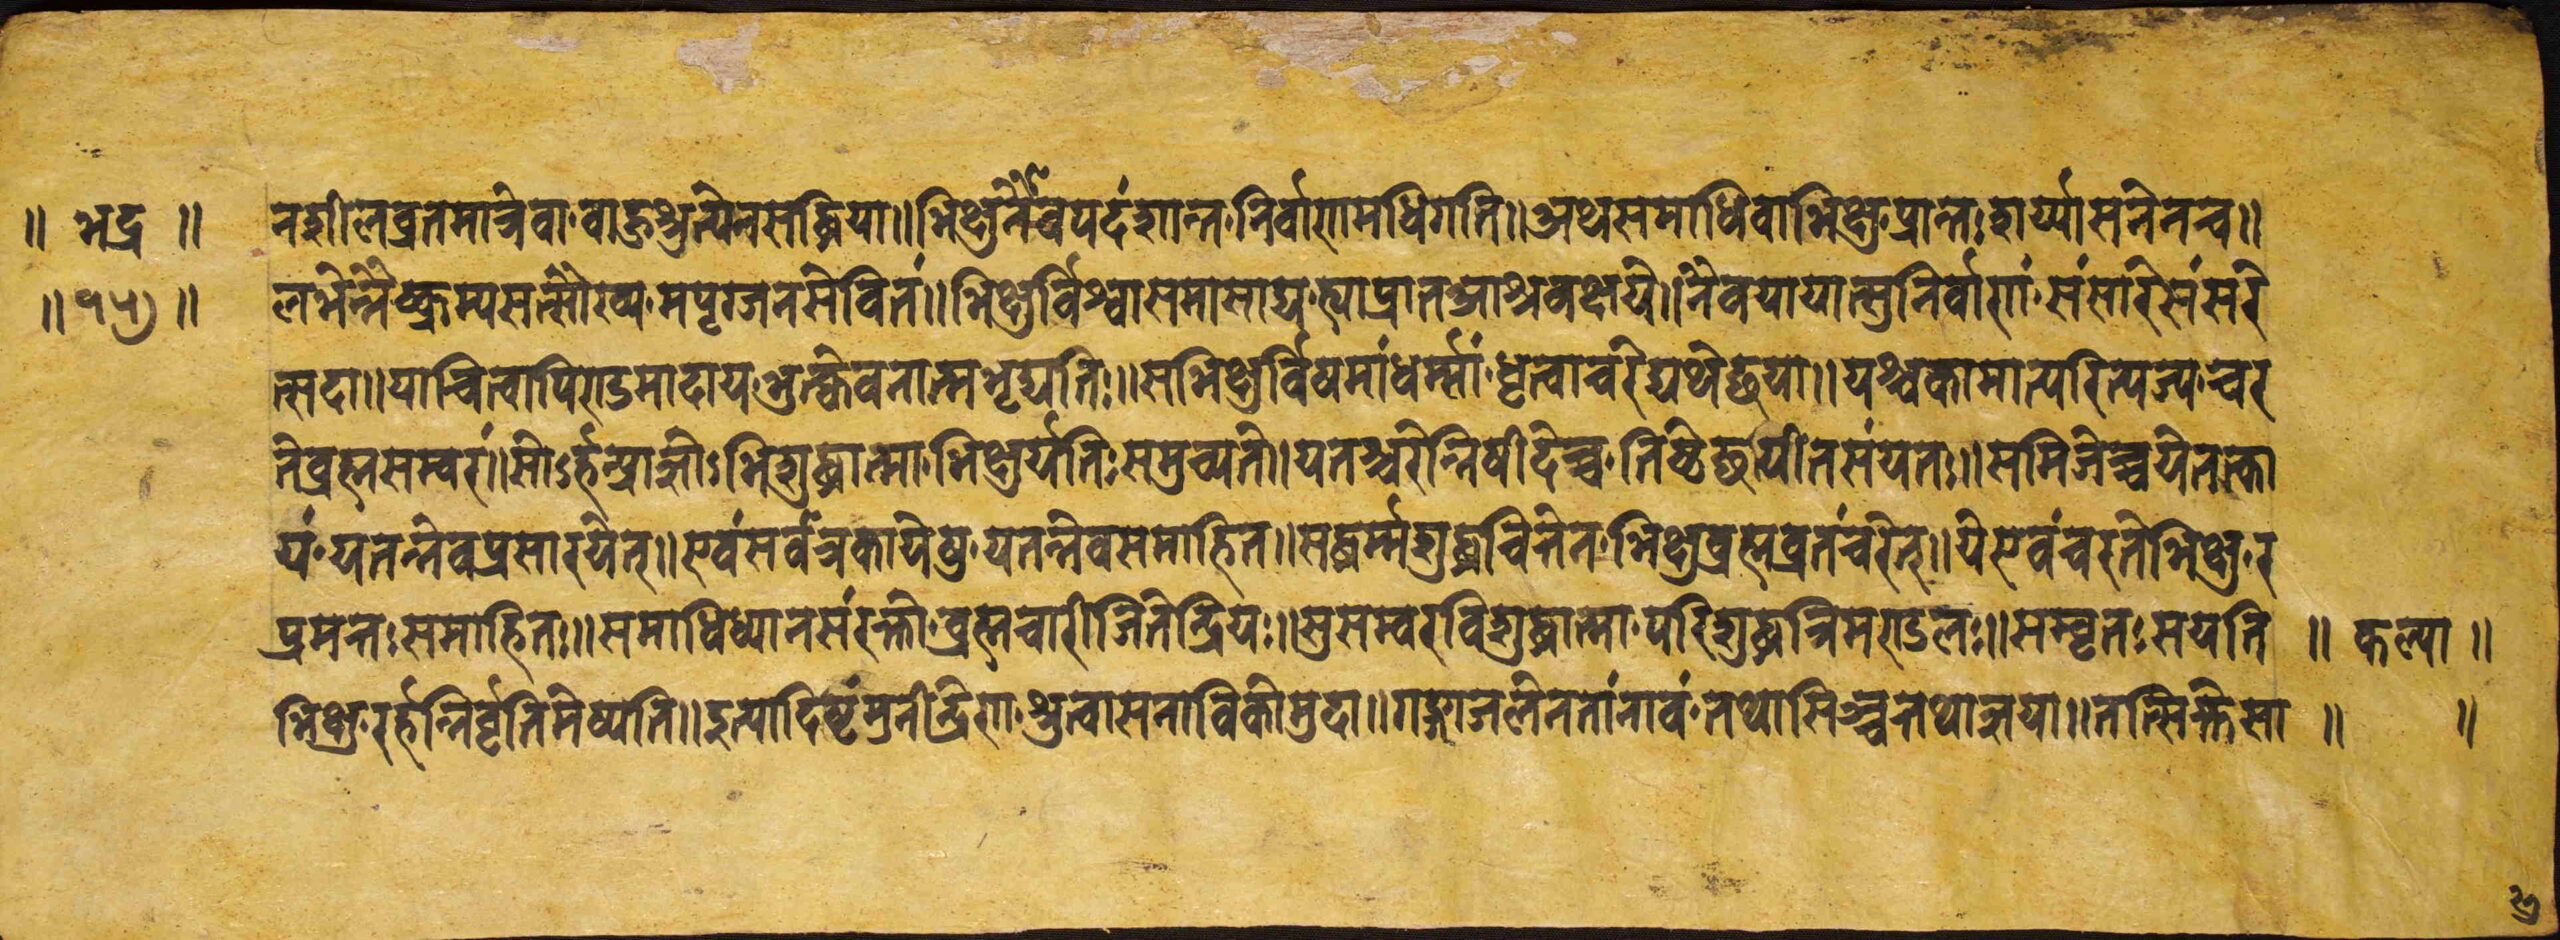 ॥ भद्र ॥ न शीलव्रतमात्रेण वा बाहुश्रुत्येन सद्धिया॥ भिक्षुर्नैव पदं शान्त निर्वाणमधिगति॥ अथ समाधि वा भिक्षु प्रान्तः शर्य्यासनेनच॥
॥ १५७ ॥ लभेन्नैष्क्रम्य सत्सौख्य मपृग्जनसेवितं॥ भिक्षुर्विश्वासमासाद्य नैवयायात्सुनिर्वाणं संसारे संसरे
त्सदा॥ याचित्वा पिण्डमादाय भुत्केवनात्मभृद्यतिः॥ स भिक्षुर्विषमां धर्म्मां धृत्वाचरेद्यथेच्छया॥ यश्चकामात्परित्यज्य चर
ते व्रह्मसम्वरं॥ सोऽर्हन्प्राज्ञोऽभिशुद्धात्मा भिक्षुर्यतिः समुच्यते॥ यतश्चरेन्निषीदेच्च तिष्ठेच्छयीतसंयतः॥ समिञ्जेच्चयेतत्का
यं यतन्नेवप्रसारयेत्॥ एवं सर्वत्रकायेषु यतन्नेवसमाहित॥ सद्धर्म्मशुद्धचित्तेन भिक्षुव्रह्मव्रतंचरेत्॥ ये एवंचरते भिक्षु र
प्रमत्तः समाहितः॥ समाधिध्यानसंरक्तो व्रह्मचारी जितेन्द्रियः॥ सुसम्वरविशुद्धात्मा परिशुद्धत्रिमण्डलः॥ सम्वृतः सयति ॥ कल्या ॥
भिक्षु रर्हन्निर्वृतिमेष्यति॥ इत्यादिष्टं मुनीन्द्रेण श्रुत्वा सनाविकोमुदा॥ गङ्गाजलेनतांनावं तथासिञ्चतथाज्ञया॥ तत्सिक्तेसा ॥ ॥